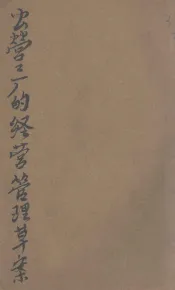 公營工厂的经营管理草案